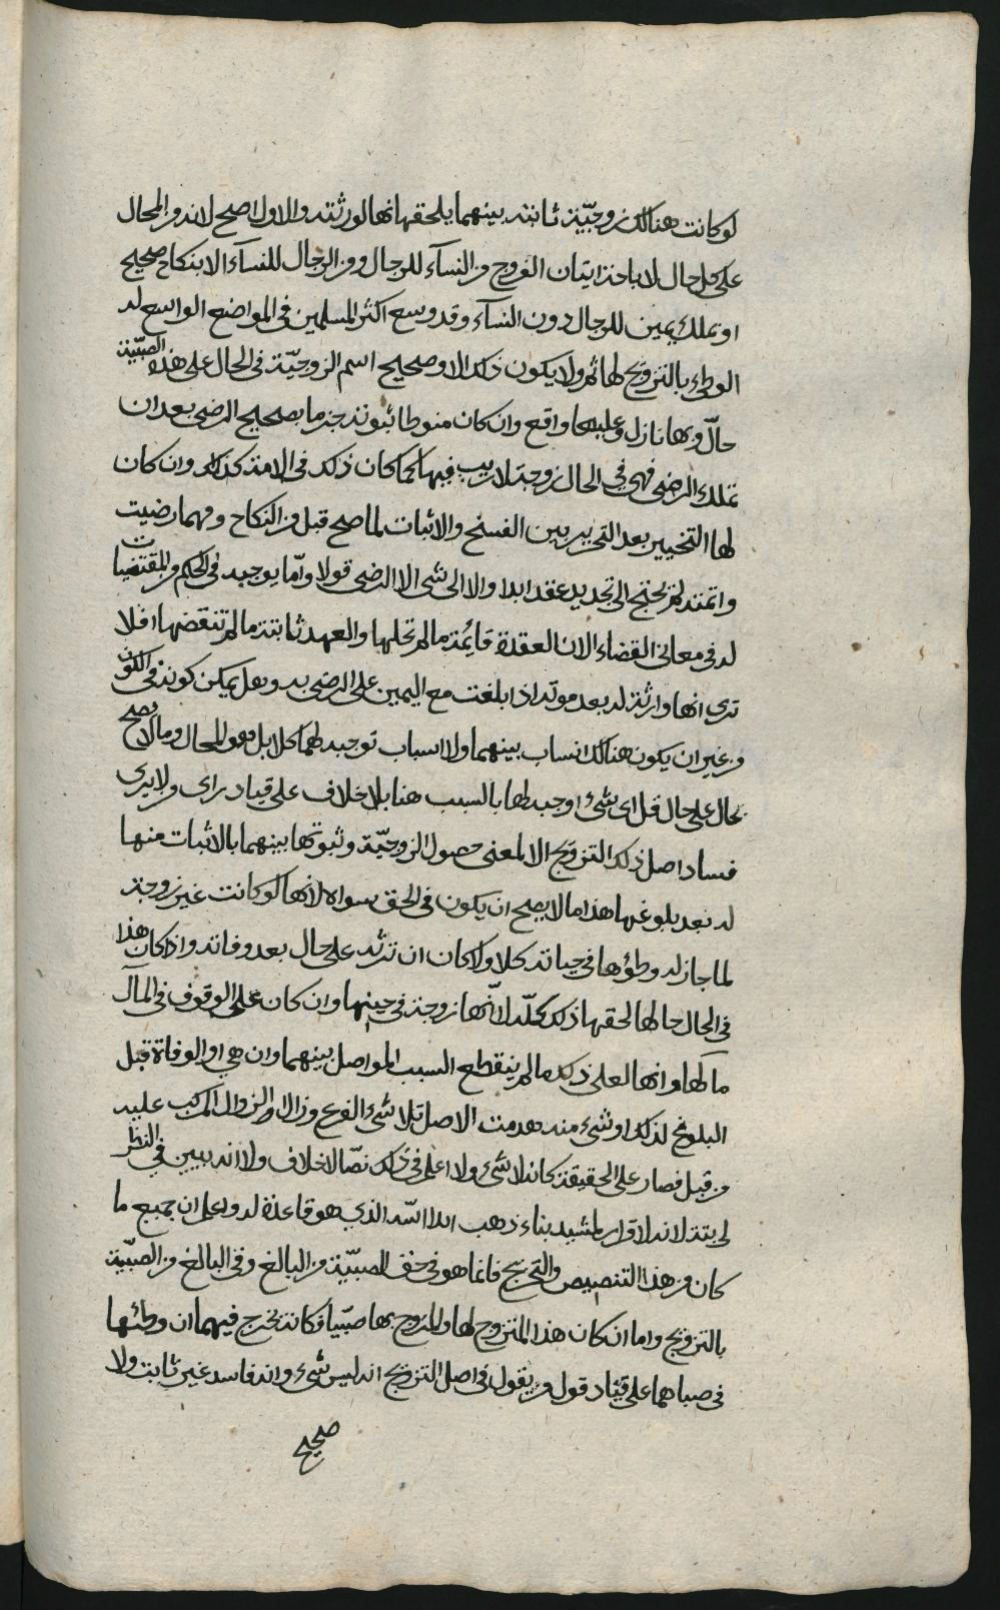 لو كانت هنالك زوجيّة ثابتة بينهما يلحقها انها لورثته والاول اصح لانه من المحال
على كل حال لاباحة اتيان الفروج من النسآء للرجال ومن الرجال للنسآء الا بنكاح صحيح
او بملك يمين للرجال دون النسآء وقد وسع اكثر المسلمين في المواضع الواسع له
الوطء بالتزويج لها ثم ولا يكون ذلك الا وصحيح اسم الزوجيّة في الحال على هذه الصبيّة
حالّ وبها نازل وعليها واقع وان كان منوطا ثبوته جزما بصحيح الرضى بعد ان
تملك الرضى فهي في الحال زوجة لا ريب فيها كما كان ذلك في الامة كذلك وان كان
لها التخيير بعد التحرير بين الفسخ والاثبات لما صح قبل من النكاح ومهما رضيت
واتمته لم يحتج الى تجديد عقد ابدا والا الى شيء الا الرضى قولا وامّا يوجبه في الحكم والمقتضيات
له في معاني القضاء الا ان العقدة قايمة ما لم تحلها والعهد ثابتة ما لم تنقضها افلا
ترى انها وارثة له بعد موته اذا بلغت مع اليمين على الرضى به وهل يمكن كونه في الكون
من غير ان يكون هنالك انساب بينهما ولا اسباب توجبه لهما كلا بل هو المحال وما لا يصح
بحال على حال قل اي شيء اوجب لها بالسبب هنا بلا خلاف على قياد راى من لا يرى
فساد اصل ذلك التزويج الا لمعنى حصول الزوجيّة وثبوتها بينهما بالاثبات منها
له بعد بلوغها هذا ما لا يصح ان يكون في الحق سواه لانها لو كانت غير زوجة
لما جاز له وطؤها في حياته كلا ولا كان ان ترثه على حال بعد وفاته واذا كان هذا
في الحال حالها لحقها ذلك كلّه لانّها زوجة في حينها وان كان على الوقوف في المآل
مآلها وانها لعلى ذلك ما لم ينقطع السبب المواصل بينهما وان هي او الوفاة قبل
البلوغ لذلك او شيء منه هدمت الاصل تلاشى الفرع وزال الزوال المركب عليه
من قبل فصار على الحقيقة كانه لا شيء ولا اعلم في ذلك نصّا لاخلاف ولا انه يبين في النظر
لي بتة لانه لا قرار لمشيد بناء ذهب ابدا اسّه الذي هو قاعدة له ولعل ان جميع ما
كان من هذا التنصيص والتحريج فانما هو في حق الصبيّة من البالغ وفي البالغ من الصبيّة
بالتزويج واما ان كان هذا المتزوج لها والمزوج بها صبيّا فكانه يخرج فيهما ان وطئها
في صباهما على قياد قول من يقول في اصل التزويج انه ليس بشيء وانه فاسد غير ثابت ولا
صحيح